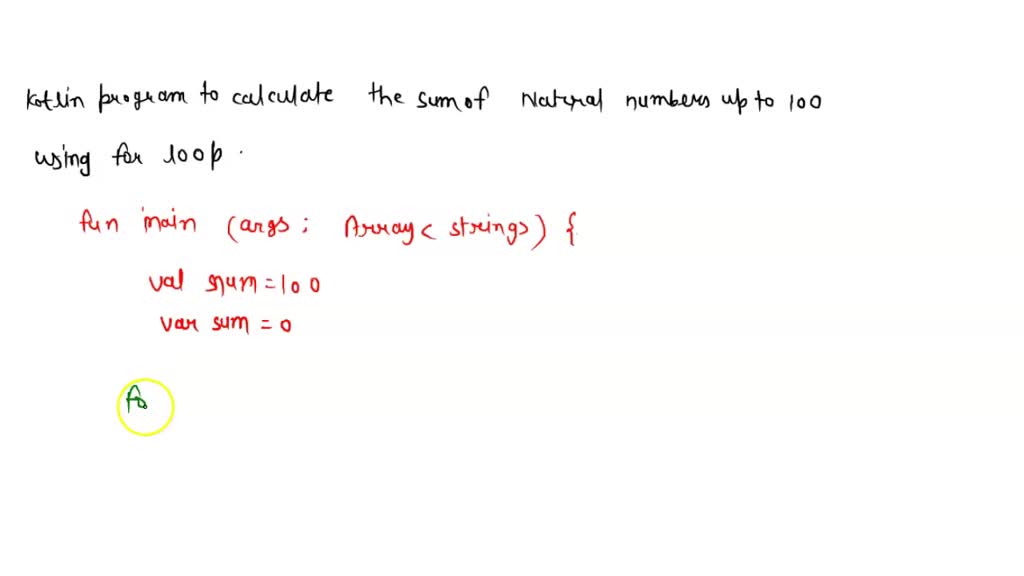 Kotlin program to calculate the sum of Natural numbers up to 100
using for loop.
fun main (args : Array< strings>) {
val num = 100
var sum = 0
fo